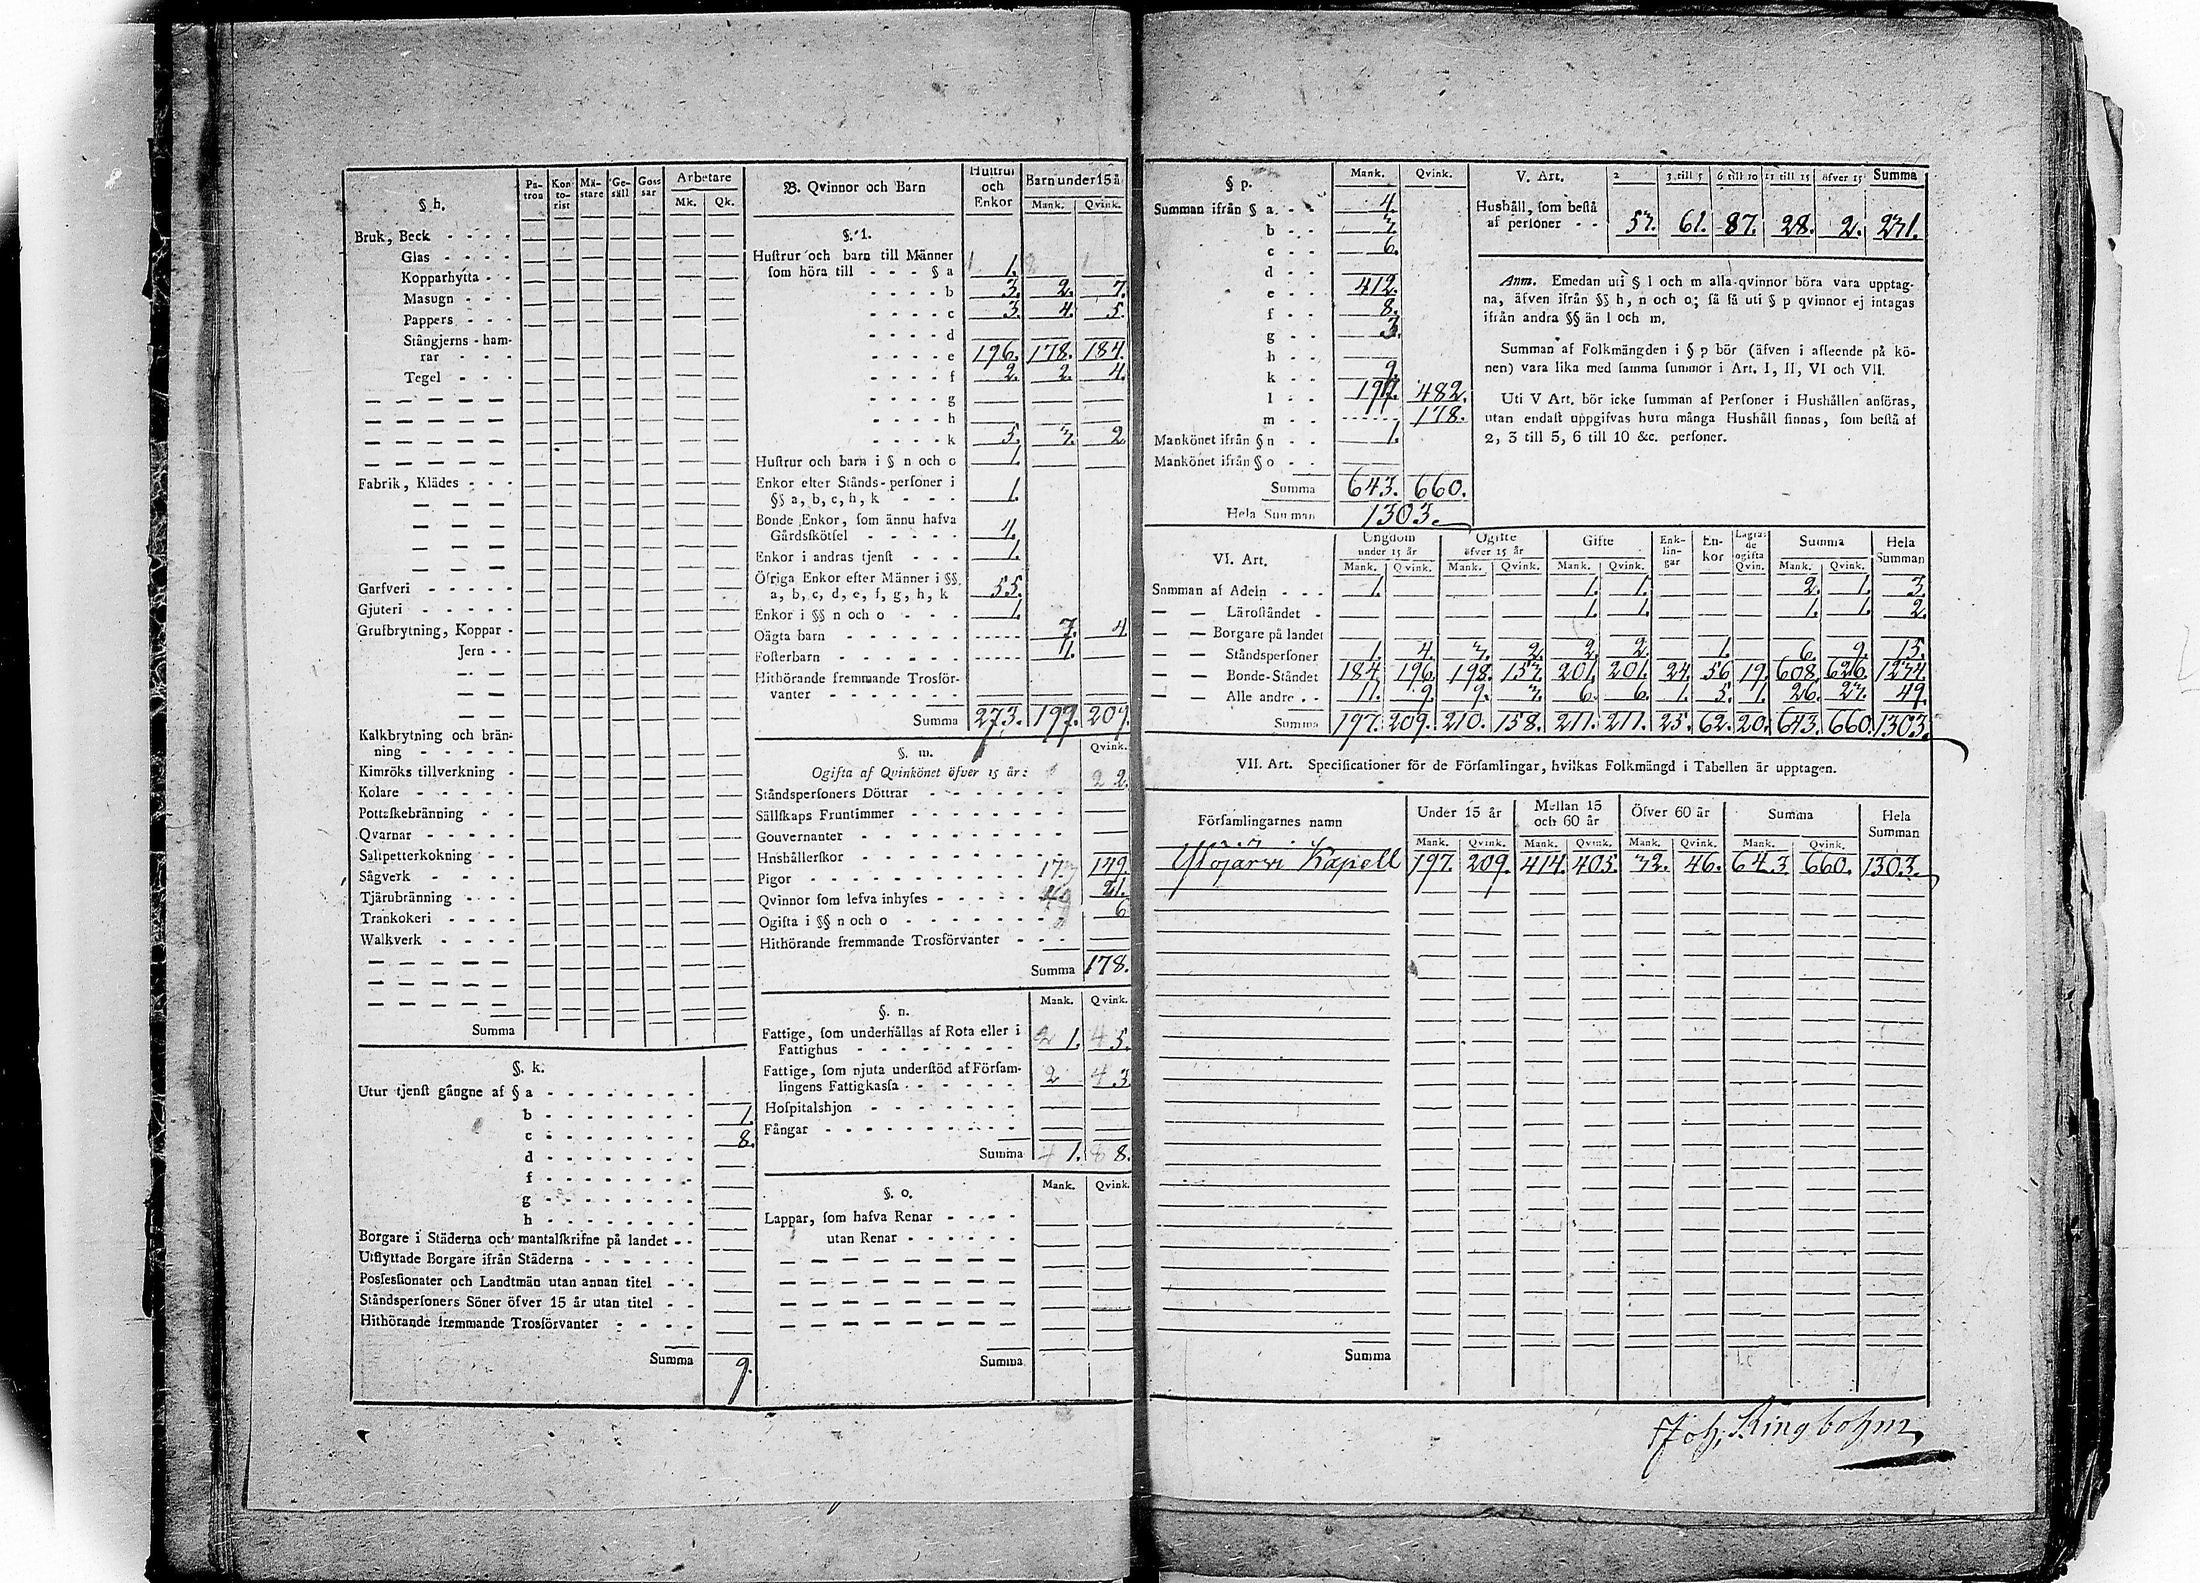 § h. Patron Kontorist Mästare Gesäll Gossar Arbetare Mk. Qk.
Bruk, Beck
Glas
Kopparhytta
Masugn
Pappers
Stångjerns-hamrar
Tegel
Fabrik, Klädes
Garfveri
Gjuteri
Grufbrytning, Koppar
Jern
Kalkbrytning och bränning
Kimröks tillverkning
Kolare
Pottaskebränning
Qvarnar
Saltpetterkokning
Sågverk
Tjärubränning
Trankokeri
Walkverk
Summa
§. k.
Utur tjenst gångne af § a
b 1.
c 8.
d
f
g
h
Borgare i Städerna och mantalskrifne på landet
Utflyttade Borgare ifrån Städerna
Possessionater och Landtmän utan annan titel
Ståndspersoners Söner öfver 15 år utan titel
Hithörande fremmande Trosförvanter
Summa 9.
B. Qvinnor och Barn Hustrur och Enkor Barn under 15 å Mank. Qvink.
§. l.
Hustrur och barn till Männer
som höra till § a 1.
b 3. 2. 7.
c 3. 4. 5.
d
e 196. 178. 184.
f 2. 2. 4.
g
h
k 5. 3. 2
Hustrur och barn i § n och o 1.
Enkor efter Stånds-personer i
§§ a, b, c, h, k 1.
Bonde Enkor, som ännu hafva
Gårdsskötsel 4.
Enkor i andras tjenst 1.
Öfriga Enkor efter Männer i §§.
a, b, c, d, e, f, g, h, k 55.
Enkor i §§ n och o 1.
Oägta barn 7. 4
Fosterbarn 1.
Hithörande fremmande Trosförvanter
Summa 273. 197. 209.
§. m. Qvink.
Ogifta af Qvinkönet öfver 15 år:
Ståndspersoners Döttrar 2.
Sällskaps Fruntimmer
Gouvernanter
Hushållerskor
Pigor 149.
Qvinnor som lefva inhyses 21.
Ogifta i §§ n och o 6
Hithörande fremmande Trosförvanter
Summa 178.
§. n. Mank. Qvink.
Fattige, som underhållas af Rota eller i
Fattighus 2 1. 4 5.
Fattige, som njuta understöd af Församlingens Fattigkassa 2 4 3
Hospitalshjon
Fångar
Summa 4 1. 8 8.
§. o. Mank. Qvink.
Lappar, som hafva Renar
utan Renar
Summa
§ p. Mank. Qvink.
Summan ifrån § a. 4.
b 3.
c 6.
d
e 412.
f 8.
g 3.
h
k 9.
l 197. 482.
m 178.
Mankönet ifrån § n 1.
Mankönet ifrån § o
Summa 643. 660.
Hela Summan 1303.
V. Art. 2 3 till 5 6 till 10 11 till 15 öfver 15 Summa
Hushåll, som bestå
af personer 53. 61. 87. 28. 2. 231.
Anm. Emedan uti § l och m alla qvinnor böra vara upptagna, äfven ifrån §§ h, n och o; så få uti § p qvinnor ej intagas
ifrån andra §§ än l och m.
Summan af Folkmängden i § p bör (äfven i afseende på könen) vara lika med samma summor i Art. I, II, VI och VII.
Uti V Art. bör icke summan af Personer i Hushållen anföras,
utan endast uppgifvas huru många Hushåll finnas, som bestå af
2, 3 till 5, 6 till 10 &c. personer.
VI. Art. Ungdom under 15 år Ogifte öfver 15 år Gifte Enklingar Enkor Lägrade ogifta Qvin. Summa Hela Summan
Mank. Qvink. Mank. Qvink. Mank. Qvink. Mank. Qvink.
Summan af Adeln 1. 1. 1. 2. 1. 3.
Läroståndet 1. 1. 1. 1. 2.
Borgare på landet
Ståndspersoner 1. 4. 3. 2. 2. 2. 1. 6. 9. 15.
Bonde-Ståndet 184. 196. 198. 153. 201. 201. 24. 56. 19. 608. 626. 1234.
Alle andre 11. 9. 9. 3. 6. 6. 1. 5. 1. 26. 23. 49.
Summa 197. 209. 210. 158. 211. 211. 25. 62. 20. 643. 660. 1303.
VII. Art. Specificationer för de Församlingar, hvilkas Folkmängd i Tabellen är upptagen.
Församlingarnes namn Under 15 år Mellan 15 och 60 år Öfver 60 år Summa Hela Summan
Mank. Qvink. Mank. Qvink. Mank. Qvink. Mank. Qvink.
Ylöjärvi Kapell 197. 209. 414. 405. 32. 46. 643. 660. 1303.
Summa
Joh. Ringbohm